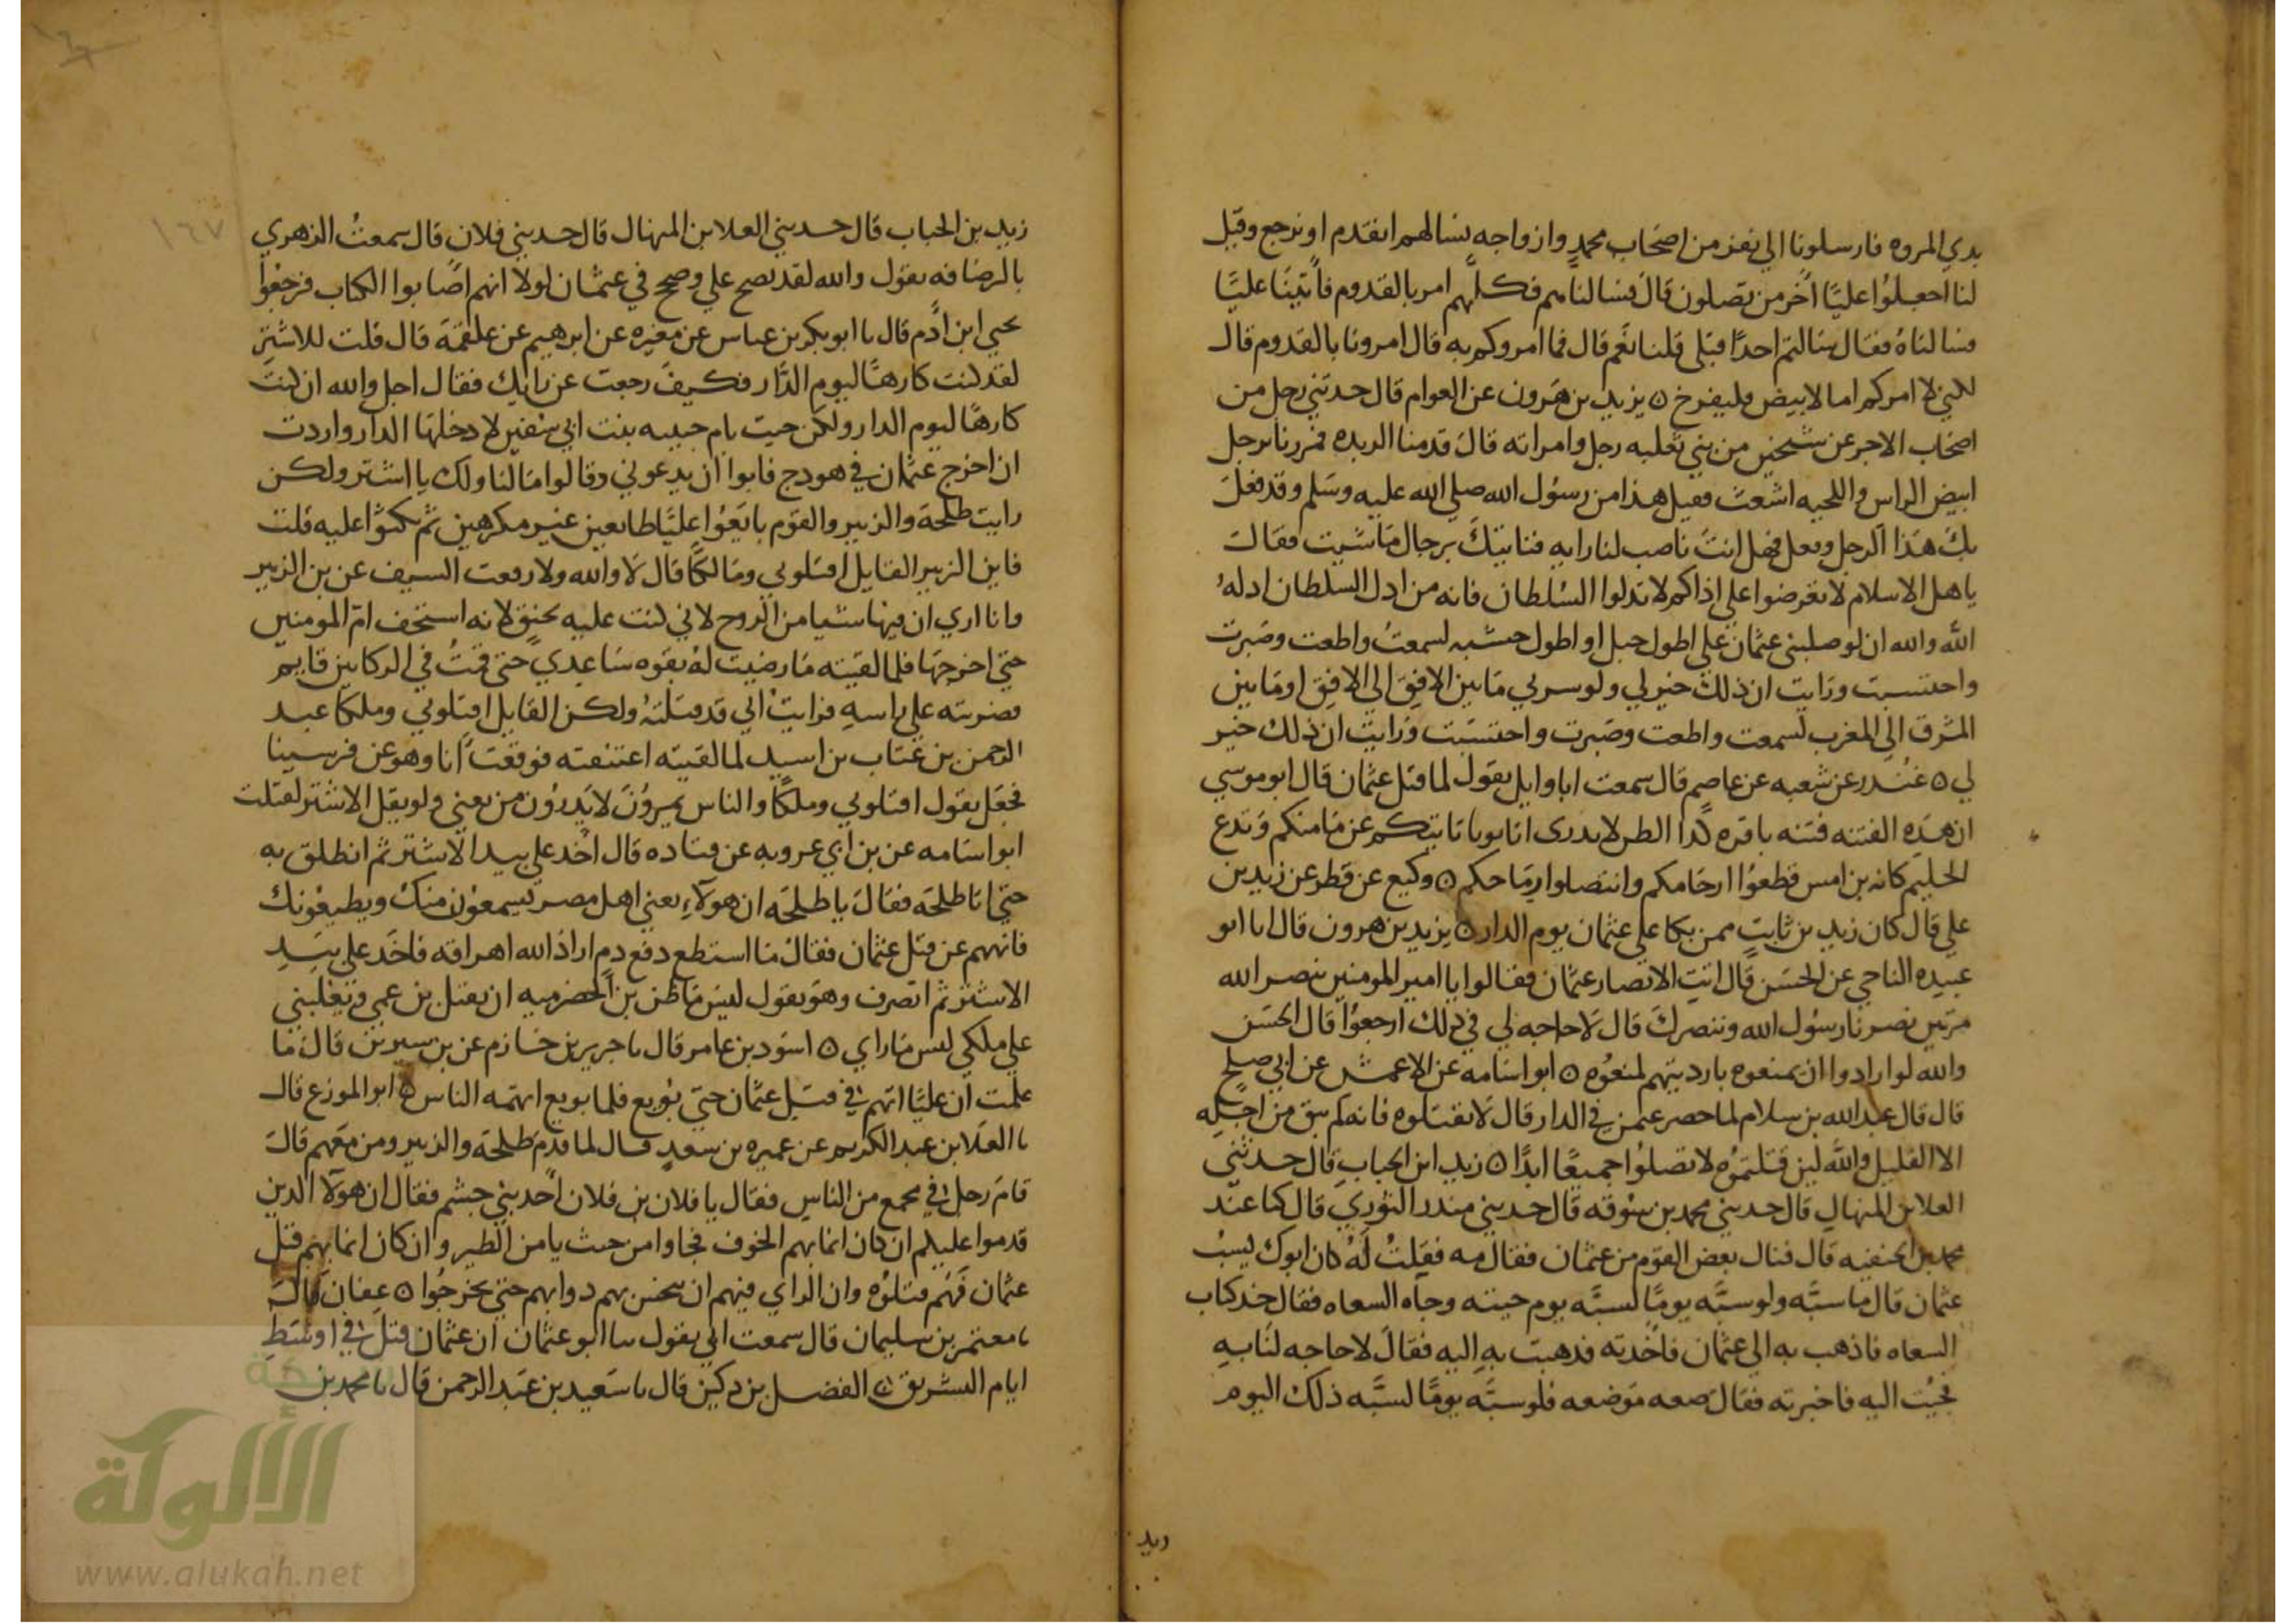 بذي المروه فارسلونا الى نفر من اصحاب محمد وازواجه نسالهم انقدم او نرجع وقيل
لنا اجعلوا عليًا آخر من تصلون قال فسالناهم فكلهم امر بالقدوم فاتينا عليًا
فسالناه فقال سالتم احدًا قبلي قلنا نعم قال فما امروكم به قال امرونا بالقدوم قال
لكني لا امركم اما لا بيض فليفرخ ه يزيد بن هرون عن العوام قال حدثني رجل من
اصحاب الاجر عن شيخين من بني ثعلبه رجل وامراته قال قدمنا الربذه فمررنا برجل
ابيض الراس واللحيه اشعث فقيل هذا من رسول الله صلى الله عليه وسلم وقد فعل
بك هذا الرجل وفعل فهل انت ناصب لنا رايه فناتيك برجال ما شيت فقال
ياهل الاسلام لا تعرضوا علي اذاكم لا تذلوا السلطان فانه من اذل السلطان اذله
الله والله ان لو صلبني عثمان على اطول حبل او اطول خشبه لسمعت واطعت وصبرت
واحتسبت ورايت ان ذلك خير لي ولو سيرني ما بين الافق الى الافق او ما بين
المشرق الى المغرب لسمعت واطعت وصبرت واحتسبت ورايت ان ذلك خير
لي ه غندر عن شعبه عن عاصم قال سمعت ابا وايل يقول لما قتل عثمان قال ابو موسى
ان هذه الفتنه فتنه باقره كدا البطن لا يدرى انا توتا تاتيكم عن مامنكم وتدع
الحليم كانه بن امس قطعوا ارحامكم وانتصلوا رماحكم ه وكيع عن فطر عن زيد بن
علي قال كان زيد بن ثابت ممن بكا على عثمان يوم الدار ه يزيد بن هرون قال انا ابو
عبيده الناجي عن الحسن قال اتت الانصار عثمان فقالوا يا امير المومنين ننصر الله
مرتين نصرنا رسول الله وننصرك قال لا حاجه لي في ذلك ارجعوا قال الحسن
والله لو ارادوا ان يمنعوه بارديتهم لمنعوه ه ابو اسامه عن الاعمش عن ابي صلح
قال قال عبد الله بن سلام لما حصر عثمن في الدار قال لا تقتلوه فانه لم يبق من اجله
الا القليل والله لين قتلتموه لا تصلوا جميعًا ابدًا ه زيد ابن الحباب قال حدثني
العلا بن المنهال قال حدثني محمد بن سوقه قال حدثني منذر الثوري قال كنا عند
محمد بن الحنفيه قال فنال بعض القوم من عثمان فقال مه فقلت له كان ابوك يسب
عثمان قال ما سبه ولو سبه يومًا لسبه يوم جيته وجاه السعاه فقال خذ كتاب
السعاه فاذهب به الى عثمان فاخذته فذهبت به اليه فقال لا حاجه لنا به
فجيت اليه فاخبرته فقال ضعه موضعه فلو سبه يومًا لسبه ذلك اليوم
زيد
١٦٧
زيد بن الحباب قال حدثني العلا بن المنهال قال حدثني فلان قال سمعت الزهري
بالرصافه يقول والله لقد نصح علي وصحح في عثمان لولا انهم اصابوا الكتاب فرجعوا
يحيى ابن ادم قال نا ابو بكر بن عياش عن مغيره عن ابرهيم عن علقمة قال قلت للاشتر
لقد كنت كارهًا ليوم الدار فكيف رجعت عن رايك فقال اجل والله ان كنت
كارهًا ليوم الدار ولكن جيت بام حبيبه بنت ابي سفين لادخلها الدار واردت
ان اخرج عثمان في هودج فابوا ان يدعوني وقالوا ما لنا ولك يا اشتر ولكن
رايت طلحة والزبير والقوم بايعوا عليًا طايعين غير مكرهين ثم نكثوا عليه قلت
فابن الزبير القايل اقتلوني ومالكًا قال لا والله ولا رفعت السيف عن بن الزبير
وانا ارى ان فيها شيا من الروح لاني كنت عليه بحنق لانه استخف ام المومنين
حتى اخرجها فلما لقيته ما رضيت له بقوه ساعدي حتى قمت في الركابين قايم
فضربته على راسه فرايت اني قد قتلته ولكن القايل اقتلوني وملكا عبد
الرحمن بن عتاب بن اسيد لما لقيته اعتنقته فوقعت انا وهو عن فرسينا
فجعل يقول اقتلوني وملكًا والناس يمرون لا يدرون من يعني ولو يقل الاشتر لقتلت
ابو اسامه عن بن ابي عروبه عن قتاده قال اخذ علي بيد الاشتر ثم انطلق به
حتى اتا طلحه فقال يا طلحه ان هولاء يعني اهل مصر يسمعون منك ويطيعونك
فانههم عن قتل عثمان فقال ما استطع دفع دم اراد الله اهراقه فاخذ علي بيد
الاشتر ثم انصرف وهو يقول ليس ما ظن بن الحضرميه ان يقتل بن عمي ويغلبني
على ملكي ليس ما راي ه اسود بن عامر قال نا جرير بن حازم عن بن سيرين قال ما
علمت ان عليًا اتهم في قتل عثمان حتى بويع فلما بويع اتهمه الناس ه ابو المورع قال
نا العلا بن عبد الكريم عن عميره بن سعد قال لما قدم طلحه والزبير ومن معهم قال
قام رجل في مجمع من الناس فقال يا فلان بن فلان احد بني جشم فقال ان هولا الذين
قدموا عليكم ان كان انما بهم الخوف فجاوا من حيث يامن الطير وان كان انما بهم قتل
عثمان فهم قتلوه وان الراي فيهم ان تنخس بهم دوابهم حتى يخرجوا ه عفان قال
نا معتمر بن سليمان قال سمعت ابي يقول نا ابو عثمان ان عثمان قتل في اوسط
ايام التشريق ه الفضل بن دكين قال نا سعيد بن عبد الرحمن قال نا محمد بن
الألوكة
www.alukah.net